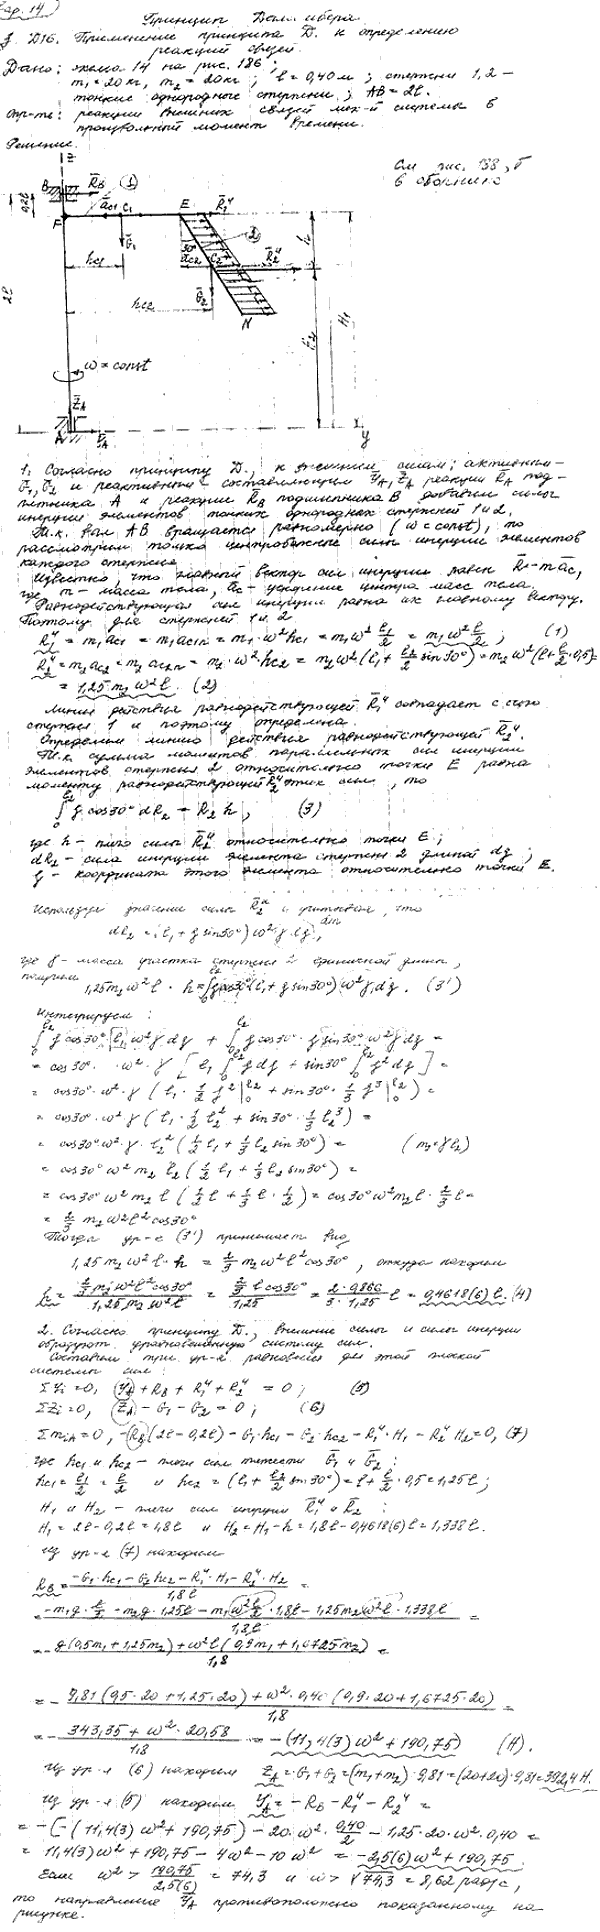 Вар. 14)
Принцип Даламбера
§ D16. Применение принципа D. к определению
реакций связей.
Дано: схема 14 на рис. 186;
m₁=20кг, m₂=20кг; l=0,40м; стержни 1,2 –
тонкие однородные стержни; AB=2l.
Опр-ть: реакции внешних связей мех-й системы в
произвольный момент времени.
Решение.
См рис. 138, б
в сборнике
z
B R̄_B 1
0,2l
ā_c1 C₁ E R̄₁ᵘ
F
Ḡ₁ 30° 2 h
h_c1 ā_c2 C₂ R̄₂ᵘ
Ḡ₂
h_c2 N H₂ H₁
2l
ω=const
Z̄_A
A Ȳ_A y
1. Согласно принципу D., к внешним силам; активным –
Ḡ₁, Ḡ₂ и реактивным – составляющим Ȳ_A, Z̄_A реакции R̄_A под-
пятника A и реакции R̄_B подшипника B добавим силы
инерции элементов тонких однородных стержней 1 и 2.
Т.к. вал AB вращается равномерно (ω=const), то
рассмотрим только центробежные силы инерции элементов
каждого стержня.
Известно, что главный вектор сил инерции равен R̄=-mā_c,
где m – масса тела, ā_c – ускорение центра масс тела.
Равнодействующая сил инерции равна их главному вектору.
Поэтому для стержней 1 и 2
R₁ᵘ = m₁a_c1 = m₁a_c1n = m₁·ω²h_c1 = m₁ω² l₁/2 = m₁ω² l/2 ; (1)
R₂ᵘ = m₂a_c2 = m₂a_c2n = m₂·ω²h_c2 = m₂ω²(l₁+ l₂/2 sin30°) = m₂ω²(l+ l/2 ·0,5)=
= 1,25m₂ω²l. (2)
Линия действия равнодействующей R̄₁ᵘ совпадает с осью
стержня 1 и поэтому определена.
Определим линию действия равнодействующей R̄₂ᵘ.
Т.к. сумма моментов параллельных сил инерции
элементов стержня 2 относительно точки E равна
моменту равнодействующей R̄₂ᵘ этих сил, то
∫₀^l₂ ξ cos30° dR₂ = R₂ h, (3)
где h – плечо силы R̄₂ᵘ относительно точки E;
dR₂ – сила инерции элемента стержня 2 длиной dξ;
ξ – координата этого элемента относительно точки E.
Используя значение силы R̄₂ᵘ и учитывая, что
dR₂ = (l₁+ξ sin30°)ω²γ dξ, dm
где γ – масса участка стержня 2 единичной длины,
получим
1,25m₂ω²l · h = ∫₀^l₂ ξcos30°(l₁+ξ sin30°)ω²γ dξ. (3')
Интегрируем:
∫₀^l₂ ξ cos30° l₁ ω²γ dξ + ∫₀^l₂ ξ cos30°·ξ sin30° ω²γ dξ =
= cos30°·ω²·γ [ l₁ ∫₀^l₂ ξdξ + sin30° ∫₀^l₂ ξ²dξ ] =
= cos30°·ω²·γ ( l₁· 1/2 ξ² |₀^l₂ + sin30°· 1/3 ξ³ |₀^l₂ ) =
= cos30°·ω²γ ( l₁· 1/2 l₂² + sin30°· 1/3 l₂³ ) =
= cos30°ω²·γ·l₂² ( 1/2 l₁ + 1/3 l₂ sin30° ) = (m₂=γl₂)
= cos30°ω²m₂ l₂ ( 1/2 l₁ + 1/3 l₂ sin30° ) =
= cos30°ω²m₂ l ( 1/2 l + 1/3 l · 1/2 ) = cos30°ω²m₂l· 2/3 l =
= 2/3 m₂ω²l² cos30°
Тогда ур-е (3') принимает вид
1,25m₂ω²l·h = 2/3 m₂ω²l² cos30°, откуда находим
h = (2/3 m₂ω²l²cos30°)/(1,25m₂ω²l) = (2/3 l cos30°)/1,25 = (2·0,866)/(3·1,25) l = 0,4618(6) l. (4)
2. Согласно принципу D., внешние силы и силы инерции
образуют уравновешенную систему сил.
Составим три ур-я равновесия для этой плоской
системы сил:
ΣY_i=0, Y_A + R_B + R₁ᵘ + R₂ᵘ = 0; (5)
ΣZ_i=0, Z_A – G₁ – G₂ = 0; (6)
Σm_iA=0, –R_B(2l–0,2l) – G₁·h_c1 – G₂·h_c2 – R₁ᵘ·H₁ – R₂ᵘ H₂=0, (7)
где h_c1 и h_c2 – плечи сил тяжести Ḡ₁ и Ḡ₂:
h_c1= l₁/2 = l/2 и h_c2 = (l₁+ l₂/2 sin30°)= l+ l/2 ·0,5=1,25l;
H₁ и H₂ – плечи сил инерции R̄₁ᵘ и R̄₂ᵘ:
H₁=2l–0,2l=1,8l и H₂=H₁–h=1,8l–0,4618(6)l=1,338l.
Из ур-я (7) находим
R_B = (–G₁·h_c1 – G₂h_c2 – R₁ᵘ·H₁ – R₂ᵘ·H₂)/1,8l =
= (–m₁g· l/2 – m₂g·1,25l – m₁ω² l/2 ·1,8l – 1,25m₂ω²l·1,338l)/1,8l =
= – (g(0,5m₁+1,25m₂)+ω²l(0,9m₁+1,6725m₂))/1,8 =
= – (9,81(0,5·20+1,25·20)+ω²·0,40(0,9·20+1,6725·20))/1,8 =
= – (343,35+ω²·20,58)/1,8 = –(11,4(3)ω²+190,75) (Н).
Из ур-я (6) находим Z_A=G₁+G₂=(m₁+m₂)·9,81=(20+20)·9,81=392,4 Н.
Из ур-я (5) находим Y_A = –R_B – R₁ᵘ – R₂ᵘ =
= –[–(11,4(3)ω²+190,75)] – 20·ω²· 0,40/2 – 1,25·20·ω²·0,40 =
= 11,4(3)ω²+190,75 – 4ω² – 10ω² = –2,5(6)ω²+190,75.
Если ω² > 190,75/2,5(6) = 74,3 и ω > √74,3 = 8,62 рад/с,
то направление Ȳ_A противоположно показанному на
рисунке.